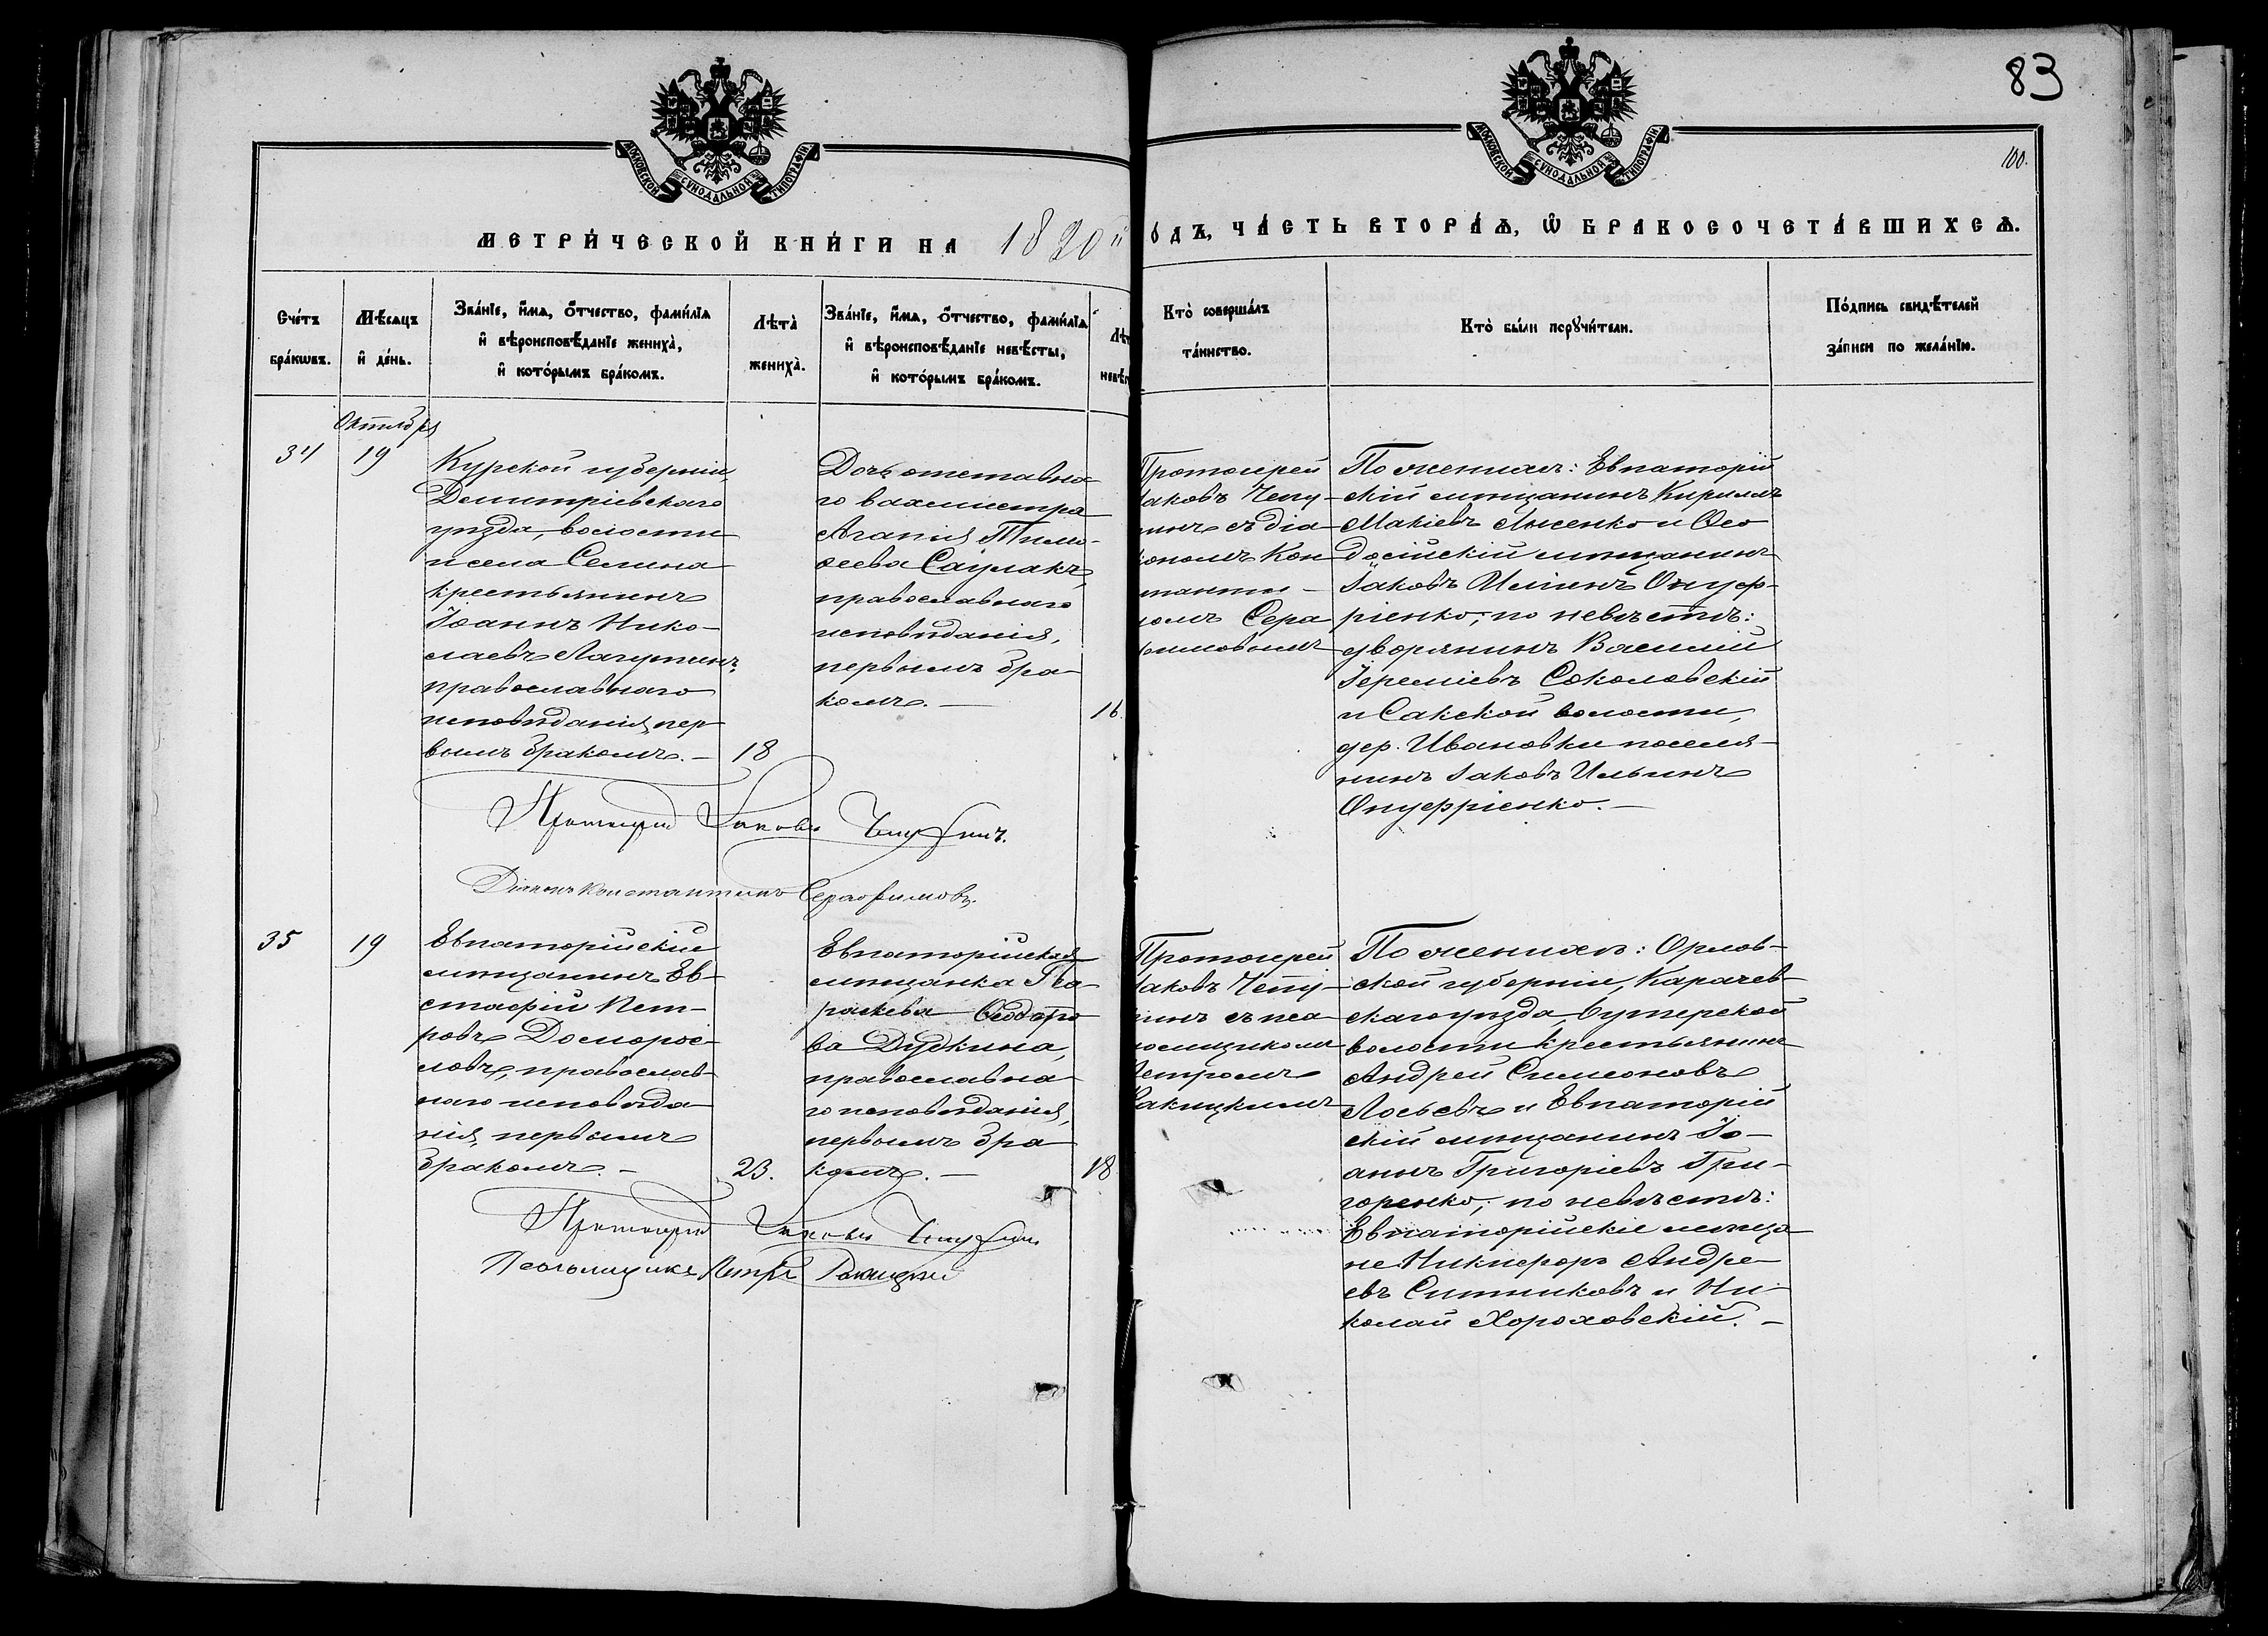 83
МОСКОВСКОЙ СУНОДАЛЬНОЙ ТИПОГРАФІИ
МОСКОВСКОЙ СУНОДАЛЬНОЙ ТИПОГРАФІИ
100.
МЕТРИ́ЧЕСКОЙ КНИ́ГИ НА
ОДЪ, ЧА́СТЬ ВТОРА́Ѧ, Ѿ БРАКОСОЧЕТА́ВШИХСѦ.
Сче́тъ
бра́кѡвъ.
Мѣ́сѧцъ
и҆ де́нь.
Зва́нїе, и҆́мѧ, ѻ҆́тчество, фами́лїѧ
и҆ вѣроисповѣ́данїе жениха̀,
и҆ кото́рымъ бра́комъ.
Лѣта̀
жениха̀.
Зва́нїе, и҆́мѧ, ѻ҆́тчество, фами́лїѧ
и҆ вѣроисповѣ́данїе невѣ́сты,
и҆ кото́рымъ бра́комъ.
Кто̀ соверша́лъ
та́инство.
Кто̀ бы́ли порꙋчи́тели.
По́дпись свидѣ́телей
за́писи по жела́нїю.
Октября
34
19
Курской губерніи,
Димитріевскаго
уѣзда, волости
и села Селина
крестьянинъ
Іоаннъ Нико-
лаевъ Лагутинъ,
православнаго
исповѣданія, пер
вымъ бракомъ. –
18
Дочь отставна
го вахмистра
Агапія Тимо-
ѳеева Саулакъ,
православнаго
исповѣданія,
первымъ бра
комъ. –
16.
Протоіерей
Іаковъ Чепу-
ринъ съ діа
кономъ Кон
стантин
омъ Сера
фимовымъ
По женихѣ: Евпаторій
скій мѣщанинъ Кириллъ
Макіевъ Лысенко и Ѳео
досійскій мѣщанинъ
Іаковъ Ильинъ Онуф-
ріенко; по невѣстѣ:
дворянинъ Василій
Іереміевъ Соколовскій
и Сакской волости,
дер. Ивановки поселя-
нинъ Іаковъ Ильинъ
Онуфріенко. –
Протоіерей Іаковъ Чепуринъ.
Діаконъ Константинъ Серафимовъ.
35
19
Евпаторійскій
мѣщанинъ Ев-
стафій Пет-
ровъ Доморос-
ловъ, православ-
наго исповѣда
нія, первымъ
бракомъ. –
23.
Евпаторійская
мѣщанка Па-
раскева Ѳедото
ва Дудкина,
православна
го исповѣданія,
первымъ бра
комъ. –
18
Протоіерей
Іаковъ Чепу-
ринъ съ пса
ломщикомъ
Петромъ
Ракицкимъ
По женихѣ: Орлов-
ской губерніи, Карачев-
скаго уѣзда, Бутерской
волости крестьянинъ
Андрей Симеоновъ
Лосьевъ и Евпаторій
скій мѣщанинъ Іо-
аннъ Григоріевъ Гри-
горенко; по невѣстѣ:
Евпаторійскіе мѣща
не Никифоръ Андре
евъ Ситниковъ и Ни-
колай Хороховскій. –
Протоіерей Іаковъ Чепуринъ
Псаломщикъ Петръ Ракицкій